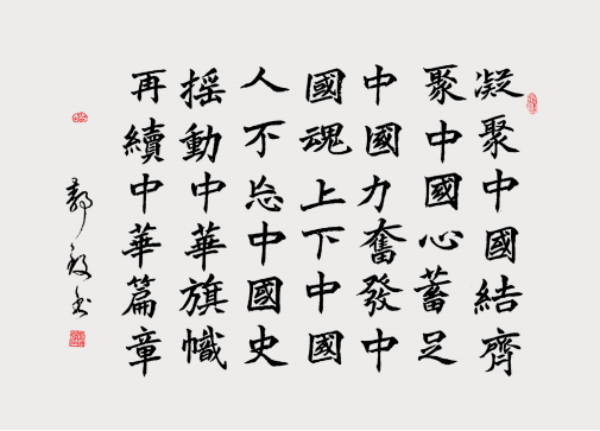 凝聚中國結齊
聚中國心蓄足
中國力奮發中
國魂上下中國
人不忘中國史
摇動中華旗幟
再續中華篇章